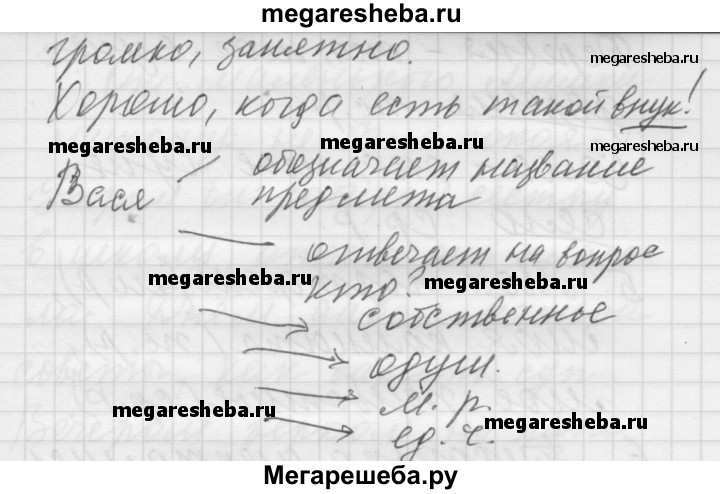 megaresheba.ru
громко, занятно.
megaresheba.ru
Хорошо, когда есть такой внук!
megaresheba.ru megaresheba.ru megaresheba.ru
Вася обозначает название
предмета
отвечает на вопрос
megaresheba.ru кто? megaresheba.ru
собственное
одуш.
megaresheba.ru м. р. megaresheba.ru
ед. ч.
Мегарешеба.ру